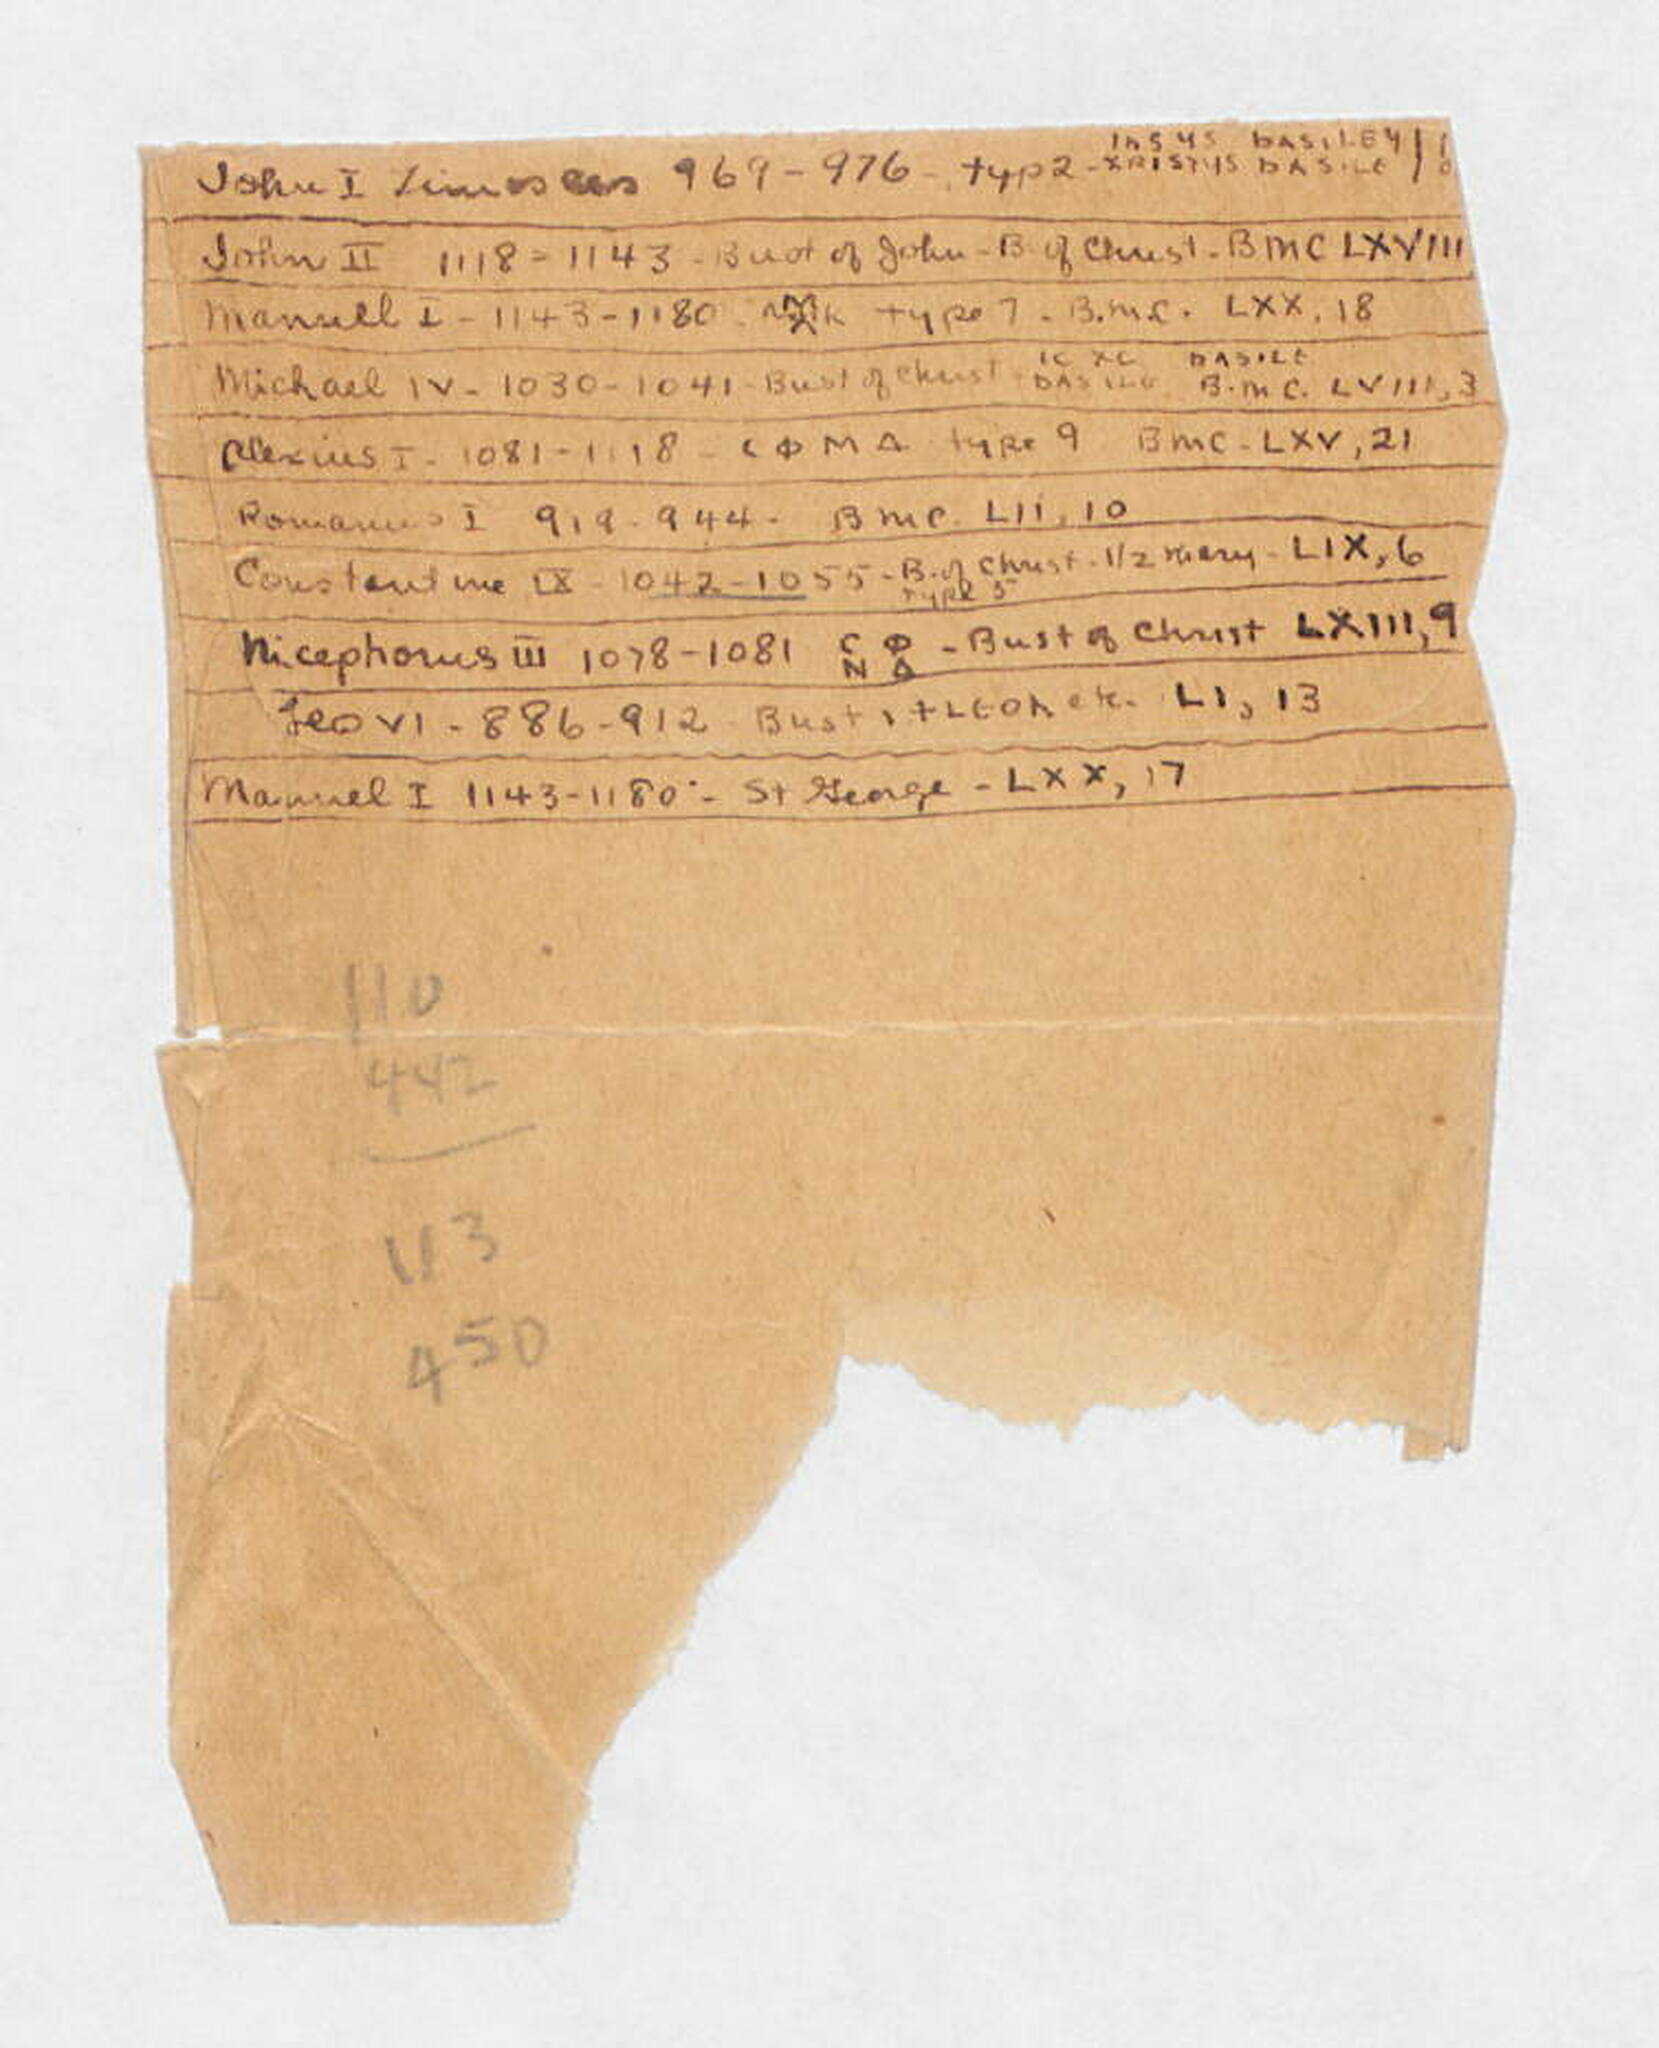 John I Zimosces 969-976 - typ 2 - IhSUS BASILEU
XRISTUS BASILE
John II 1118=1143 - Bust of John - B. of Christ - BMC LXVIII
Manuell I - 1143-1180 - type 7 - B.M.C. LXX, 18
Michael IV - 1030-1041 - Bust of Christ - IC XC BASILE
BASILE B.M.C. LVIII, 3
Alexius I - 1081-1118 - C Φ M Δ type 9 BMC - LXV, 21
Romanus I 919-944 - BMC. LII, 10
Constantine IX - 1042-1055 - B. of Christ - 1/2 Mary - LIX, 6
type 5
Nicephorus III 1078-1081 C Φ - Bust of Christ LXIII, 9
N Δ
Leo VI - 886-912 - Bust +LEON etc. LI, 13
Manuel I 1143-1180 - St George - LXX, 17
110
442
113
450